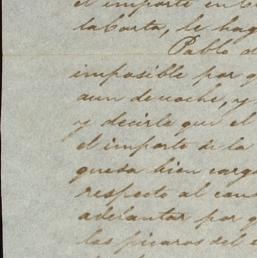 el importe en
la Carta, le hag
Pablo d
imposible por q
aun de noche, y
y decirle que el
el importe de la
quesa bien carg
respecto al can
adelantar por q
los picaros del c